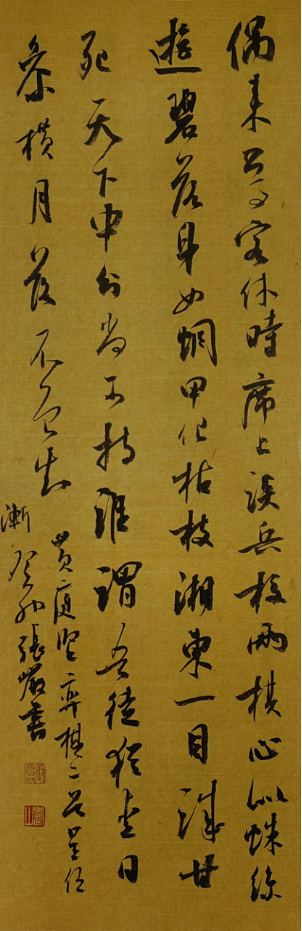 偶来公事客休時席上談兵校兩棋心似蛛絲
遊碧落身如蜩甲化枯枝湘東一目誠甘
死天下中分尚可持誰謂吾徒猶愛日
參橫月落不曾知
黃庭堅弈棋二首呈任
漸 癸卯張嚴書